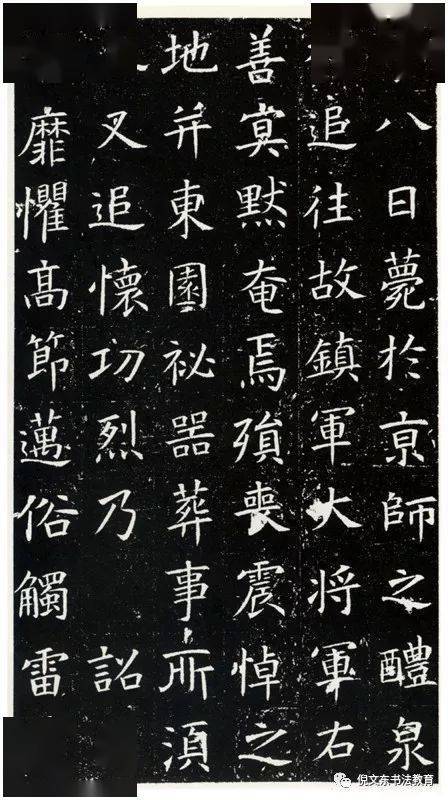 八日薨於京師之醴泉
追往故鎮軍大将軍右
善㝠默奄焉殞喪震悼之
地并東園祕器葬事所須
又追懷功烈乃 詔
靡懼高節邁俗觸雷
倪文东书法教育